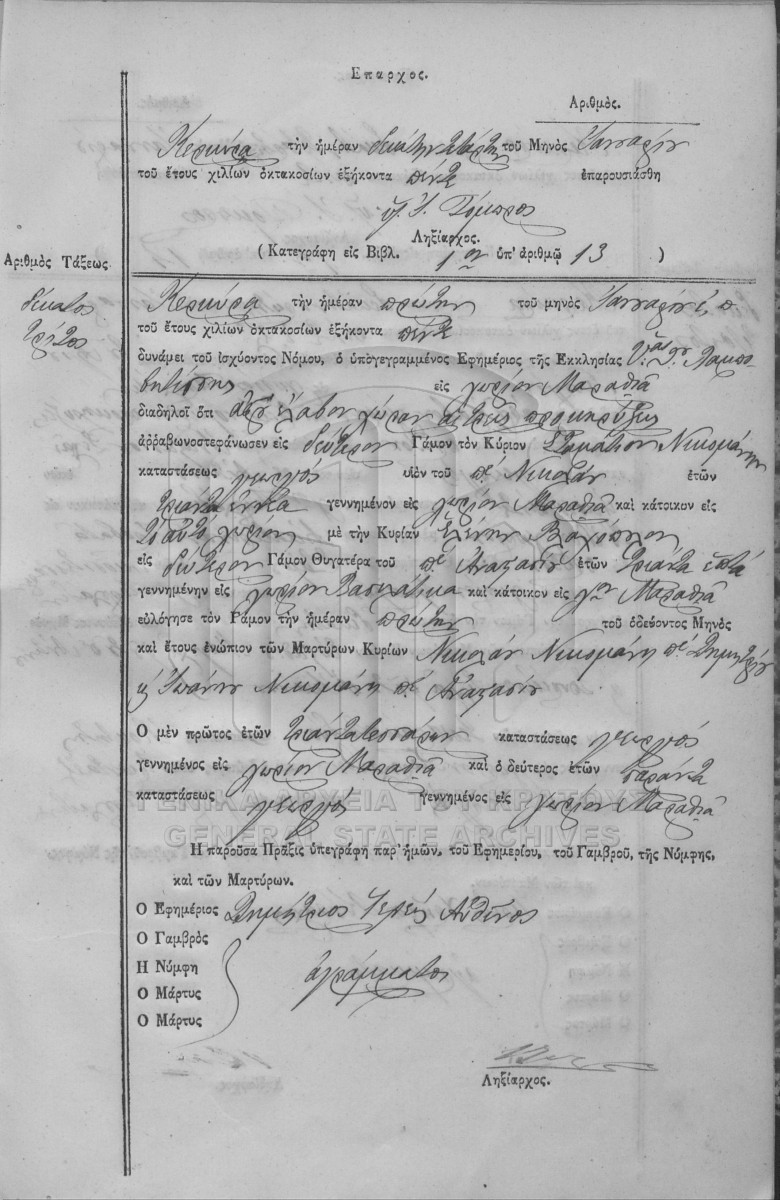 Επαρχος.
Ἀριθμὸς.
Κερκύρα τὴν ἡμέραν δεκάτην τετάρτην τοῦ Μηνὸς Ἰανουαρίου
τοῦ ἔτους χιλίων ὀκτακοσίων ἑξήκοντα πέντε ἐπαρουσιάσθη
Ληξίαρχος.
(Κατεγράφη εἰς Βιβλ. 1ον ὑπ' ἀριθμῷ 13 )
Ἀριθμὸς Τάξεως.
δέκατος
τρίτος
Κερκύρα τὴν ἡμέραν πρώτην τοῦ μηνὸς Ἰανουαρίου ἐ. π.
τοῦ ἔτους χιλίων ὀκτακοσίων ἑξήκοντα πέντε
δυνάμει τοῦ ἰσχύοντος Νόμου, ὁ ὑπογεγραμμένος Ἐφημέριος τῆς Ἐκκλησίας
εἰς χωρίον Μαραθιᾶ
διαδηλοῖ ὅτι ἀφοῦ ἔλαβον χώραν αἱ τρεῖς προκηρύξεις
ἀῤῥαβωνοστεφάνωσεν εἰς δεύτερον Γάμον τὸν Κύριον Σταμάτιον Νικομάνην
καταστάσεως γεωργός υἱὸν τοῦ πτὲ Νικολάου ἐτῶν
τριάντα ἐννέα γεννημένον εἰς χωρίον Μαραθιᾶ καὶ κάτοικον εἰς
τὸ αὐτὸ χωρίον μὲ τὴν Κυρίαν Ἑλένην Βλαχόπουλου
εἰς δεύτερον Γάμον Θυγατέρα τοῦ πτὲ Ἀναστασίου ἐτῶν τριάντα ἑπτά
γεννημένην εἰς χωρίον Βασιλάτικα καὶ κάτοικον εἰς χον Μαραθιᾶ
εὐλόγησε τὸν Γάμον τὴν ἡμέραν πρώτην τοῦ ὁδεύοντος Μηνὸς
καὶ ἔτους ἐνώπιον τῶν Μαρτύρων Κυρίων Νικολάου Νικομάνη πτὲ Δημητρίου
ϗ Ἰωάννου Νικομάνη πτὲ Ἀναστασίου
Ὁ μὲν πρῶτος ἐτῶν τριάντα τεσσάρων καταστάσεως γεωργός
γεννημένος εἰς χωρίον Μαραθιᾶ καὶ ὁ δεύτερος ἐτῶν σαράντα
καταστάσεως γεωργός γεννημένος εἰς χωρίον Μαραθιᾶ
ΓΕΝΙΚΑ ΑΡΧΕΙΑ ΤΟΥ ΚΡΑΤΟΥΣ
GENERAL STATE ARCHIVES
Ἡ παροῦσα Πρᾶξις ὑπεγράφη παρ' ἡμῶν, τοῦ Ἐφημερίου, τοῦ Γαμβροῦ, τῆς Νύμφης,
καὶ τῶν Μαρτύρων.
Ὁ Ἐφημέριος Δημήτριος Ἱερεύς Αὐθῖνος
Ὁ Γαμβρὸς
Ἡ Νύμφη ἀγράμματοι
Ὁ Μάρτυς
Ὁ Μάρτυς
Ληξίαρχος.